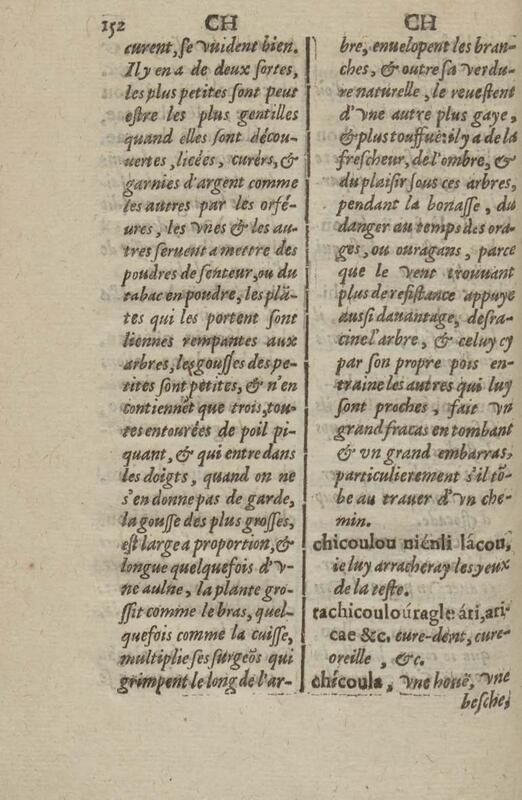 152 CH CH
curent, se vuident bien.
Il y en a de deux sortes,
les plus petites sont peut
estre les plus gentilles
quand elles sont décou-
uertes, licées, curérs, &
garnies d'argent comme
les autres par les orfé-
ures, les vnes & les au-
tres seruent a mettre des
poudres de senteur, ou du
tabac en poudre, les plã-
tes qui les portent sont
liennes rempantes aux
arbres, les gousses des pe-
tites sont petites, & n'en
contiennẽt que trois, tou-
tes entourées de poil pi-
quant, & qui entre dans
les doigts, quand on ne
s'en donne pas de garde,
la gousse des plus grosses,
est large a proportion, &
longue quelquefois d'v-
ne aulne, la plante gro-
ssit comme le bras, quel-
quefois comme la cuisse,
multiplie ses surgeõs qui
grimpent le long de l'ar-
bre, enuelopent les bran-
ches, & outre sa verdu-
re naturelle, le reuestent
d'vne autre plus gaye,
& plus touffuë: il y a de la
frescheur, de l'ombre, &
du plaisir sous ces arbres,
pendant la bonasse, du
danger au temps des ora-
ges, ou ouragans, parce
que le vent trouuant
plus de resistance appuye
aussi dauantage, desra-
cine l'arbre, & celuy cy
par son propre pois en-
traine les autres qui luy
sont proches, fait vn
grand fracas en tombant
& vn grand embarras,
particulierement s'il tõ-
be au trauer d'vn che-
min.
chicoulou niénli lácou,
ie luy arracheray les yeux
de la teste.
tachicouloúragle áti, ari-
cae &c. cure-dent, cure-
oreille, &c.
chicoula, vne houë, vne
besche,